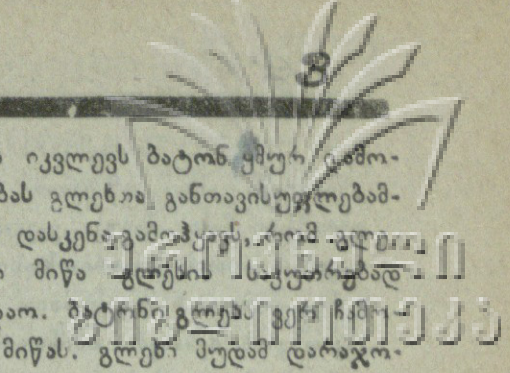 3
იკვლევს ბატონ ყმურ გამო-
ბას გლეხთა განთავისუფლებამ-
დასკვნა გამოჰყავს, რომ გლე-
მიწა გლეხის საკუთრებად
ბატონი გლეხს ვერ ჩამო-
მიწას. გლეხი მუდამ დარაჯო-
ეროვნული
ბიბლიოთეკა